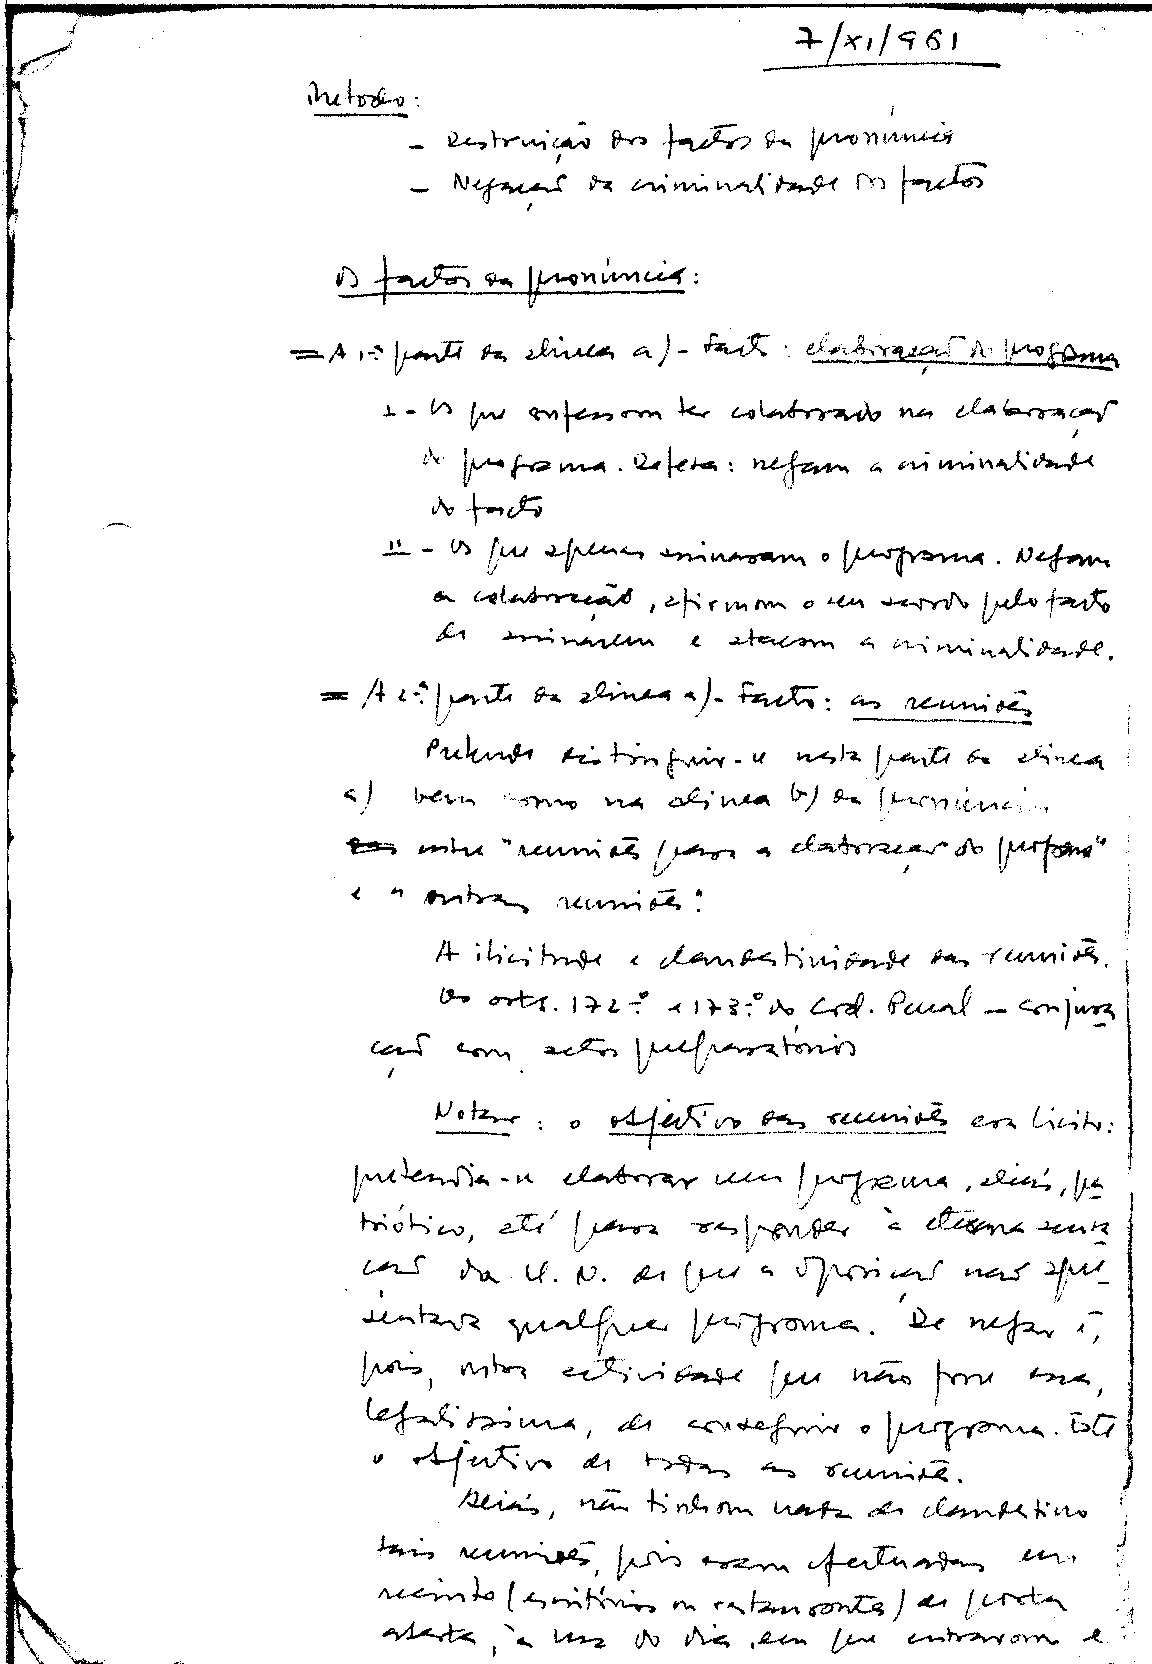 7/XI/961
Metodo:
- Destruição dos factos da pronúncia
- Negação da criminalidade dos factos
Os factos da pronúncia:
= A 1.ª parte da alinea a) - Facto: elaboração do programa
I - Os que confessam ter colaborado na elaboração
do programa. Defesa: negam a criminalidade
do facto
II - Os que apenas assinaram o programa. Negam
a colaboração, afirmam o seu acordo pelo facto
de assinarem e atacam a criminalidade.
= A 2.ª parte da alinea a) - Facto: as reuniões
Pretende distinguir-se nesta parte da alinea
a) bem como na alinea b) da pronúncia
entre "reuniões para a elaboração do programa"
e "outras reuniões".
A ilicitude e clandestinidade das reuniões.
Os arts. 172.º e 173.º do Cod. Penal - conjura
ção com actos preparatórios
Notar: o objectivo das reuniões era licito:
pretendia-se elaborar um programa, aliás, pa
triótico, até para responder à eterna acusa
ção da U. N. de que a Oposição não apre-
sentava qualquer programa. De negar é,
pois, outra actividade que não fosse essa,
legalissima, de conseguir o programa. Este
o objectivo de todas as reuniões.
Aliás, não tinham nada de clandestino
tais reuniões, pois eram efectuadas em
recinto (escritórios ou restaurantes) de porta
aberta, à luz do dia, em que entraram e